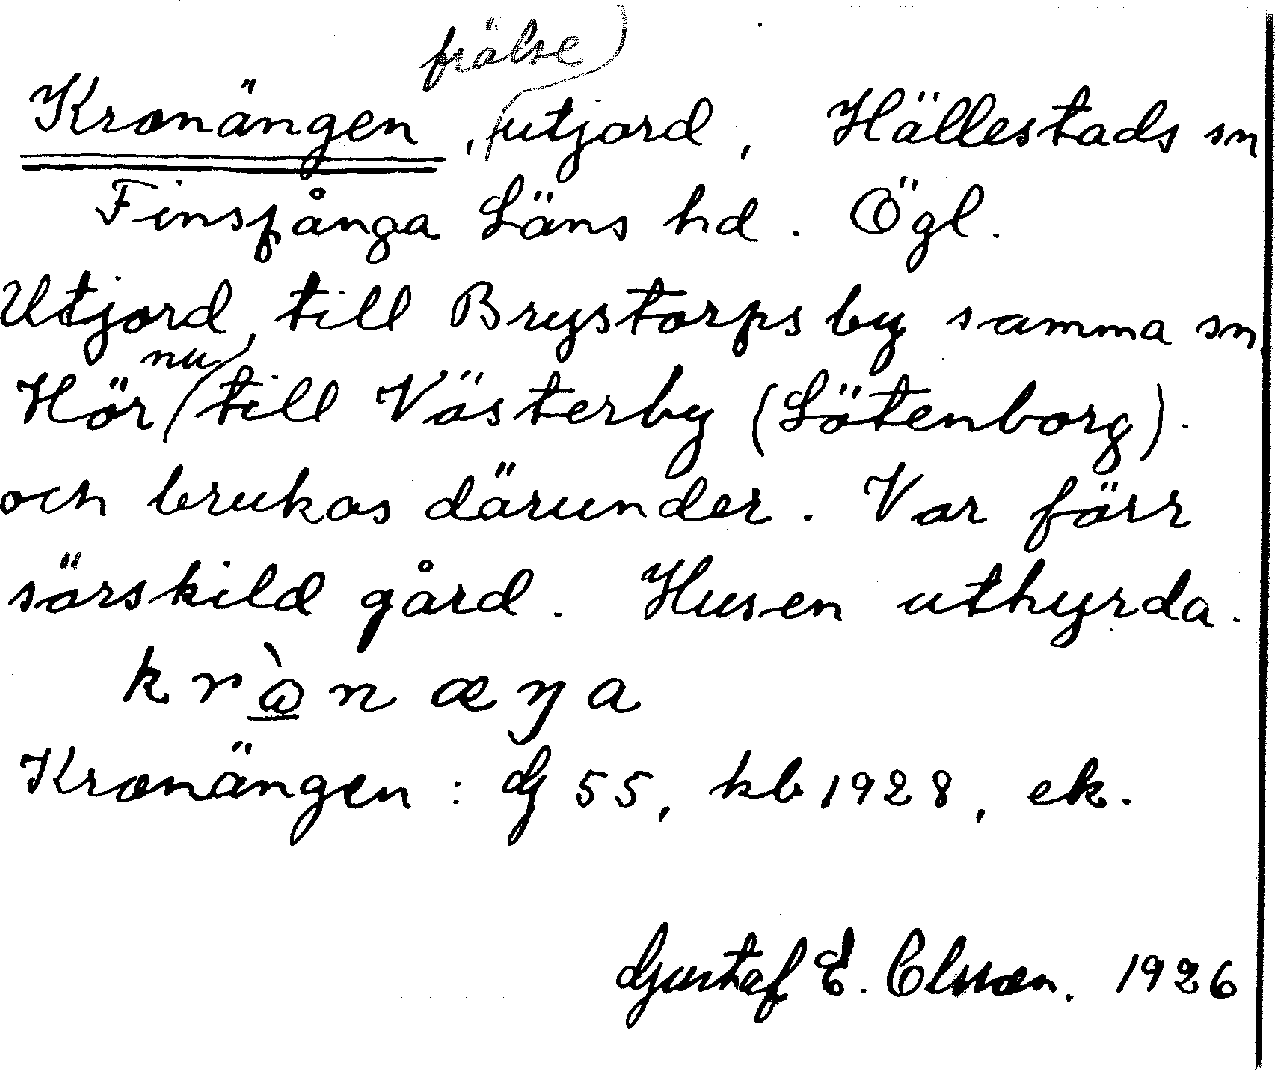 Kronängen, frälseutjord, Hällestads sn
Finspånga Läns hd. Ögl.
Utjord till Brystorps by samma sn
Hör nu till Västerby (Sötenborg).
och brukas därunder. Var förr
särskild gård. Husen uthyrda.
Kronängen: Gj 55, kb 1928, ek.
Gustaf E. Olsson. 1926